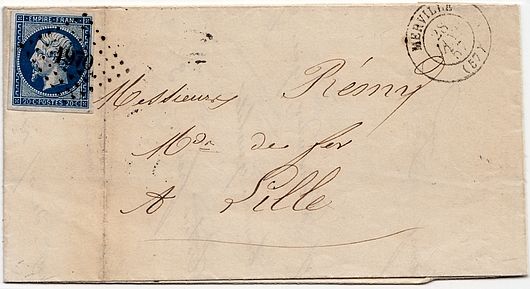 EMPIRE FRANC
20 C POSTES 20 C
MERVILLE
(57)
Messieurs Rémy
Mds de fer
A Lille